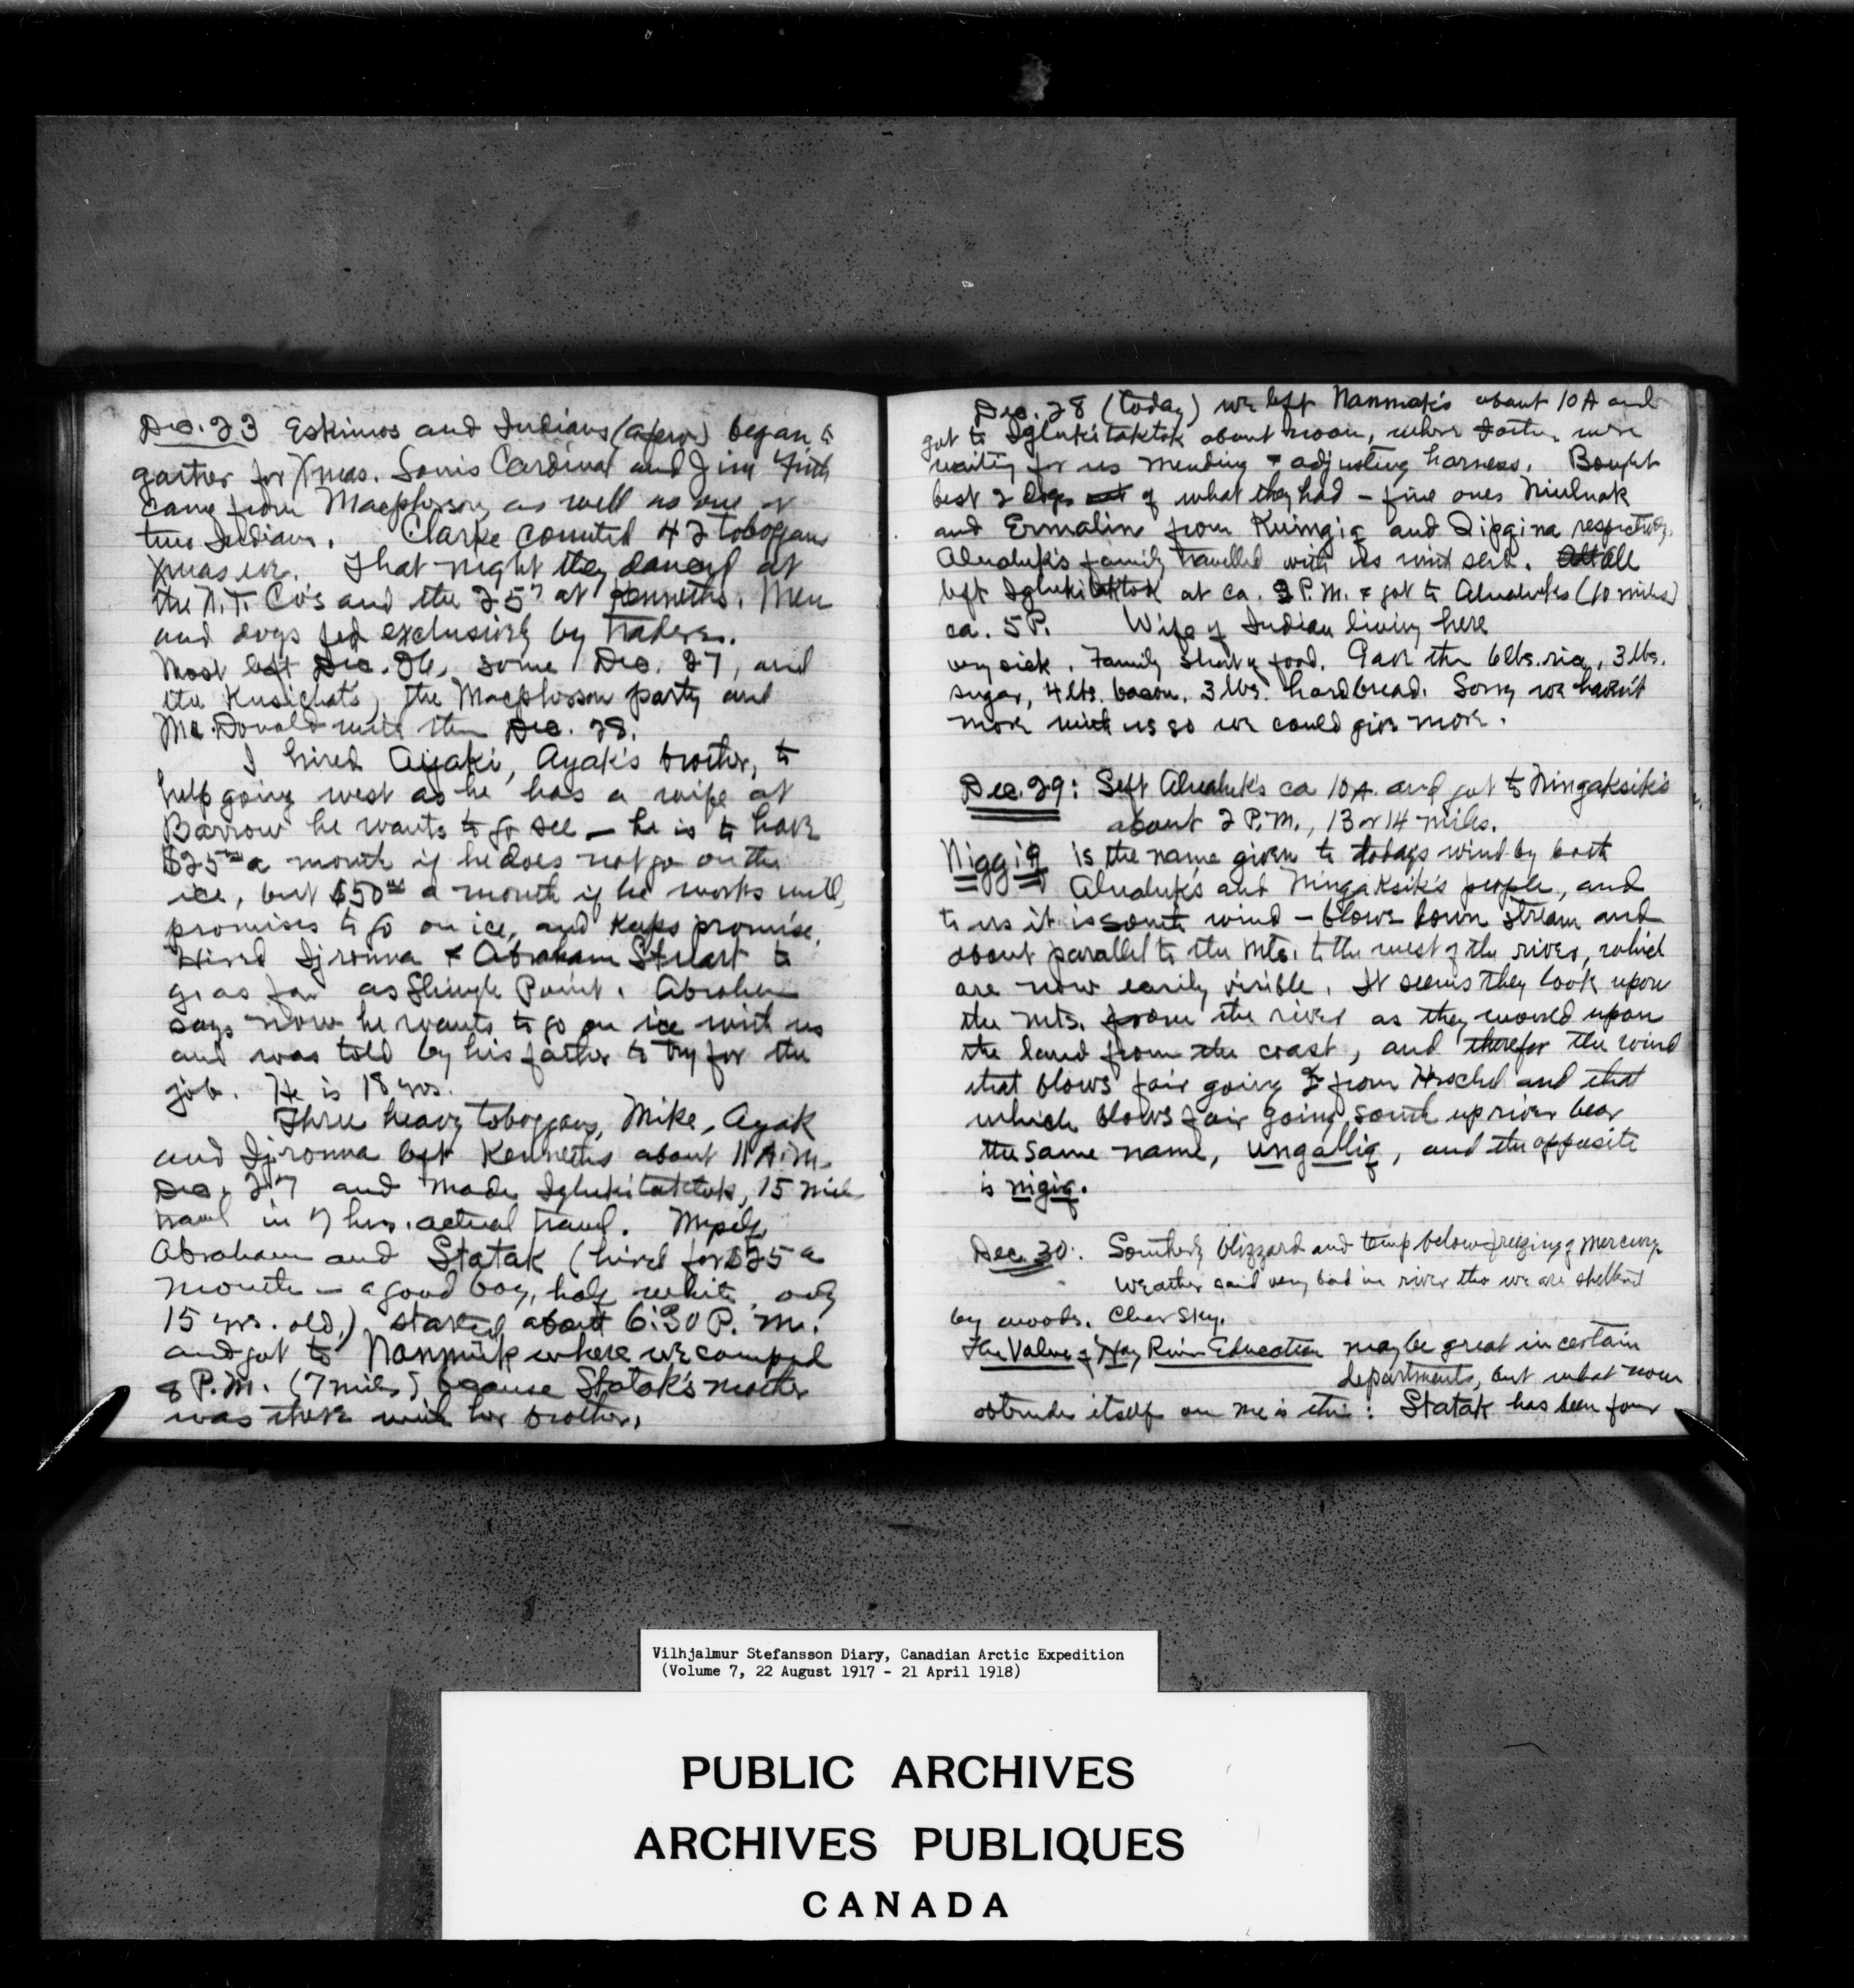 Dec. 23 Eskimos and Indians (a few) began to
gather for Xmas. Louis Cardinal and Jim Firth
came from Macpherson as well as one or
two Indians. Clarke counted 42 toboggans
Xmas eve. That night they danced at
the N.T. Co's and the 25th at Kenneths. Men
and dogs fed exclusively by traders.
Most left Dec. 26, some Dec. 27, and
the Kusichats, the Macpherson party and
Mc.Donald with them Dec. 28.
I hired Aiyaki, Ayak's brother, to
help going west as he has a wife at
Barrow he wants to go see — he is to have
$25 a month if he does not go on the
ice, but $50 a month if he works well,
promises to go on ice, and keeps promise.
Hired Ijronna & Abraham Stuart to
go as far as Shingle Point. Abraham
says now he wants to go on ice with us
and was told by his father to try for the
job. He is 18 yrs.
Three heavy toboggans, Mike, Ayak
and Ijronna left Kenneths about 11 A.M.
Dec. 27 and made Iglukitaktok, 15 mile
travel in 7 hrs. actual travel. Myself,
Abraham and Statak (hired for $25 a
month — a good boy, half white, only
15 yrs. old,) started about 6:30 P.M.
and got to Nanmuk where we camped
8 P.M. (7 miles) because Statak's mother
was there with her brother.
Dec. 28 (today) we left Nanmak's about 10 A and
got to Iglukitaktok about noon, where were
waiting for us mending & adjusting harness. Bought
best 2 dogs of what they had — fine ones Niulnak
and Ermalin from Kuingiq and Qipqina respectively.
Alualuk's family travelled with us with sled. All
left Iglukitaktok at ca. 2 P.M. & got to Alualuks (10 miles)
ca. 5 P. Wife of Indian living here
very sick. Family short of food. Gave them 6 lbs. rice, 3 lbs.
sugar, 4 lbs. bacon, 3 lbs. hardbread. Sorry we haven't
more with us so we could give more.
Dec. 29: Left Alualuk's ca 10 A. and got to Ningaksik's
about 2 P.M., 13 or 14 miles.
Niggiq is the name given to todays wind by both
Alualuk's and Ningaksik's people, and
to us it is south wind — blows down stream and
about parallel to the mts. to the west of the river, which
are now easily visible. It seems they look upon
the mts. from the river as they would upon
the land from the coast, and therefor the wind
that blows fair going E from Herschel and that
which blows fair going south up river bear
the same name, ungalliq, and the opposite
is nigiq.
Dec. 30: Southerly blizzard and temp below freezing of mercury.
Weather said very bad in river tho we are sheltered
by woods. Clear sky.
The Value of Hay River Education may be great in certain
departments, but what now
obtrudes itself on me is this: Statak has been four
Vilhjalmur Stefansson Diary, Canadian Arctic Expedition
(Volume 7, 22 August 1917 - 21 April 1918)
PUBLIC ARCHIVES
ARCHIVES PUBLIQUES
CANADA